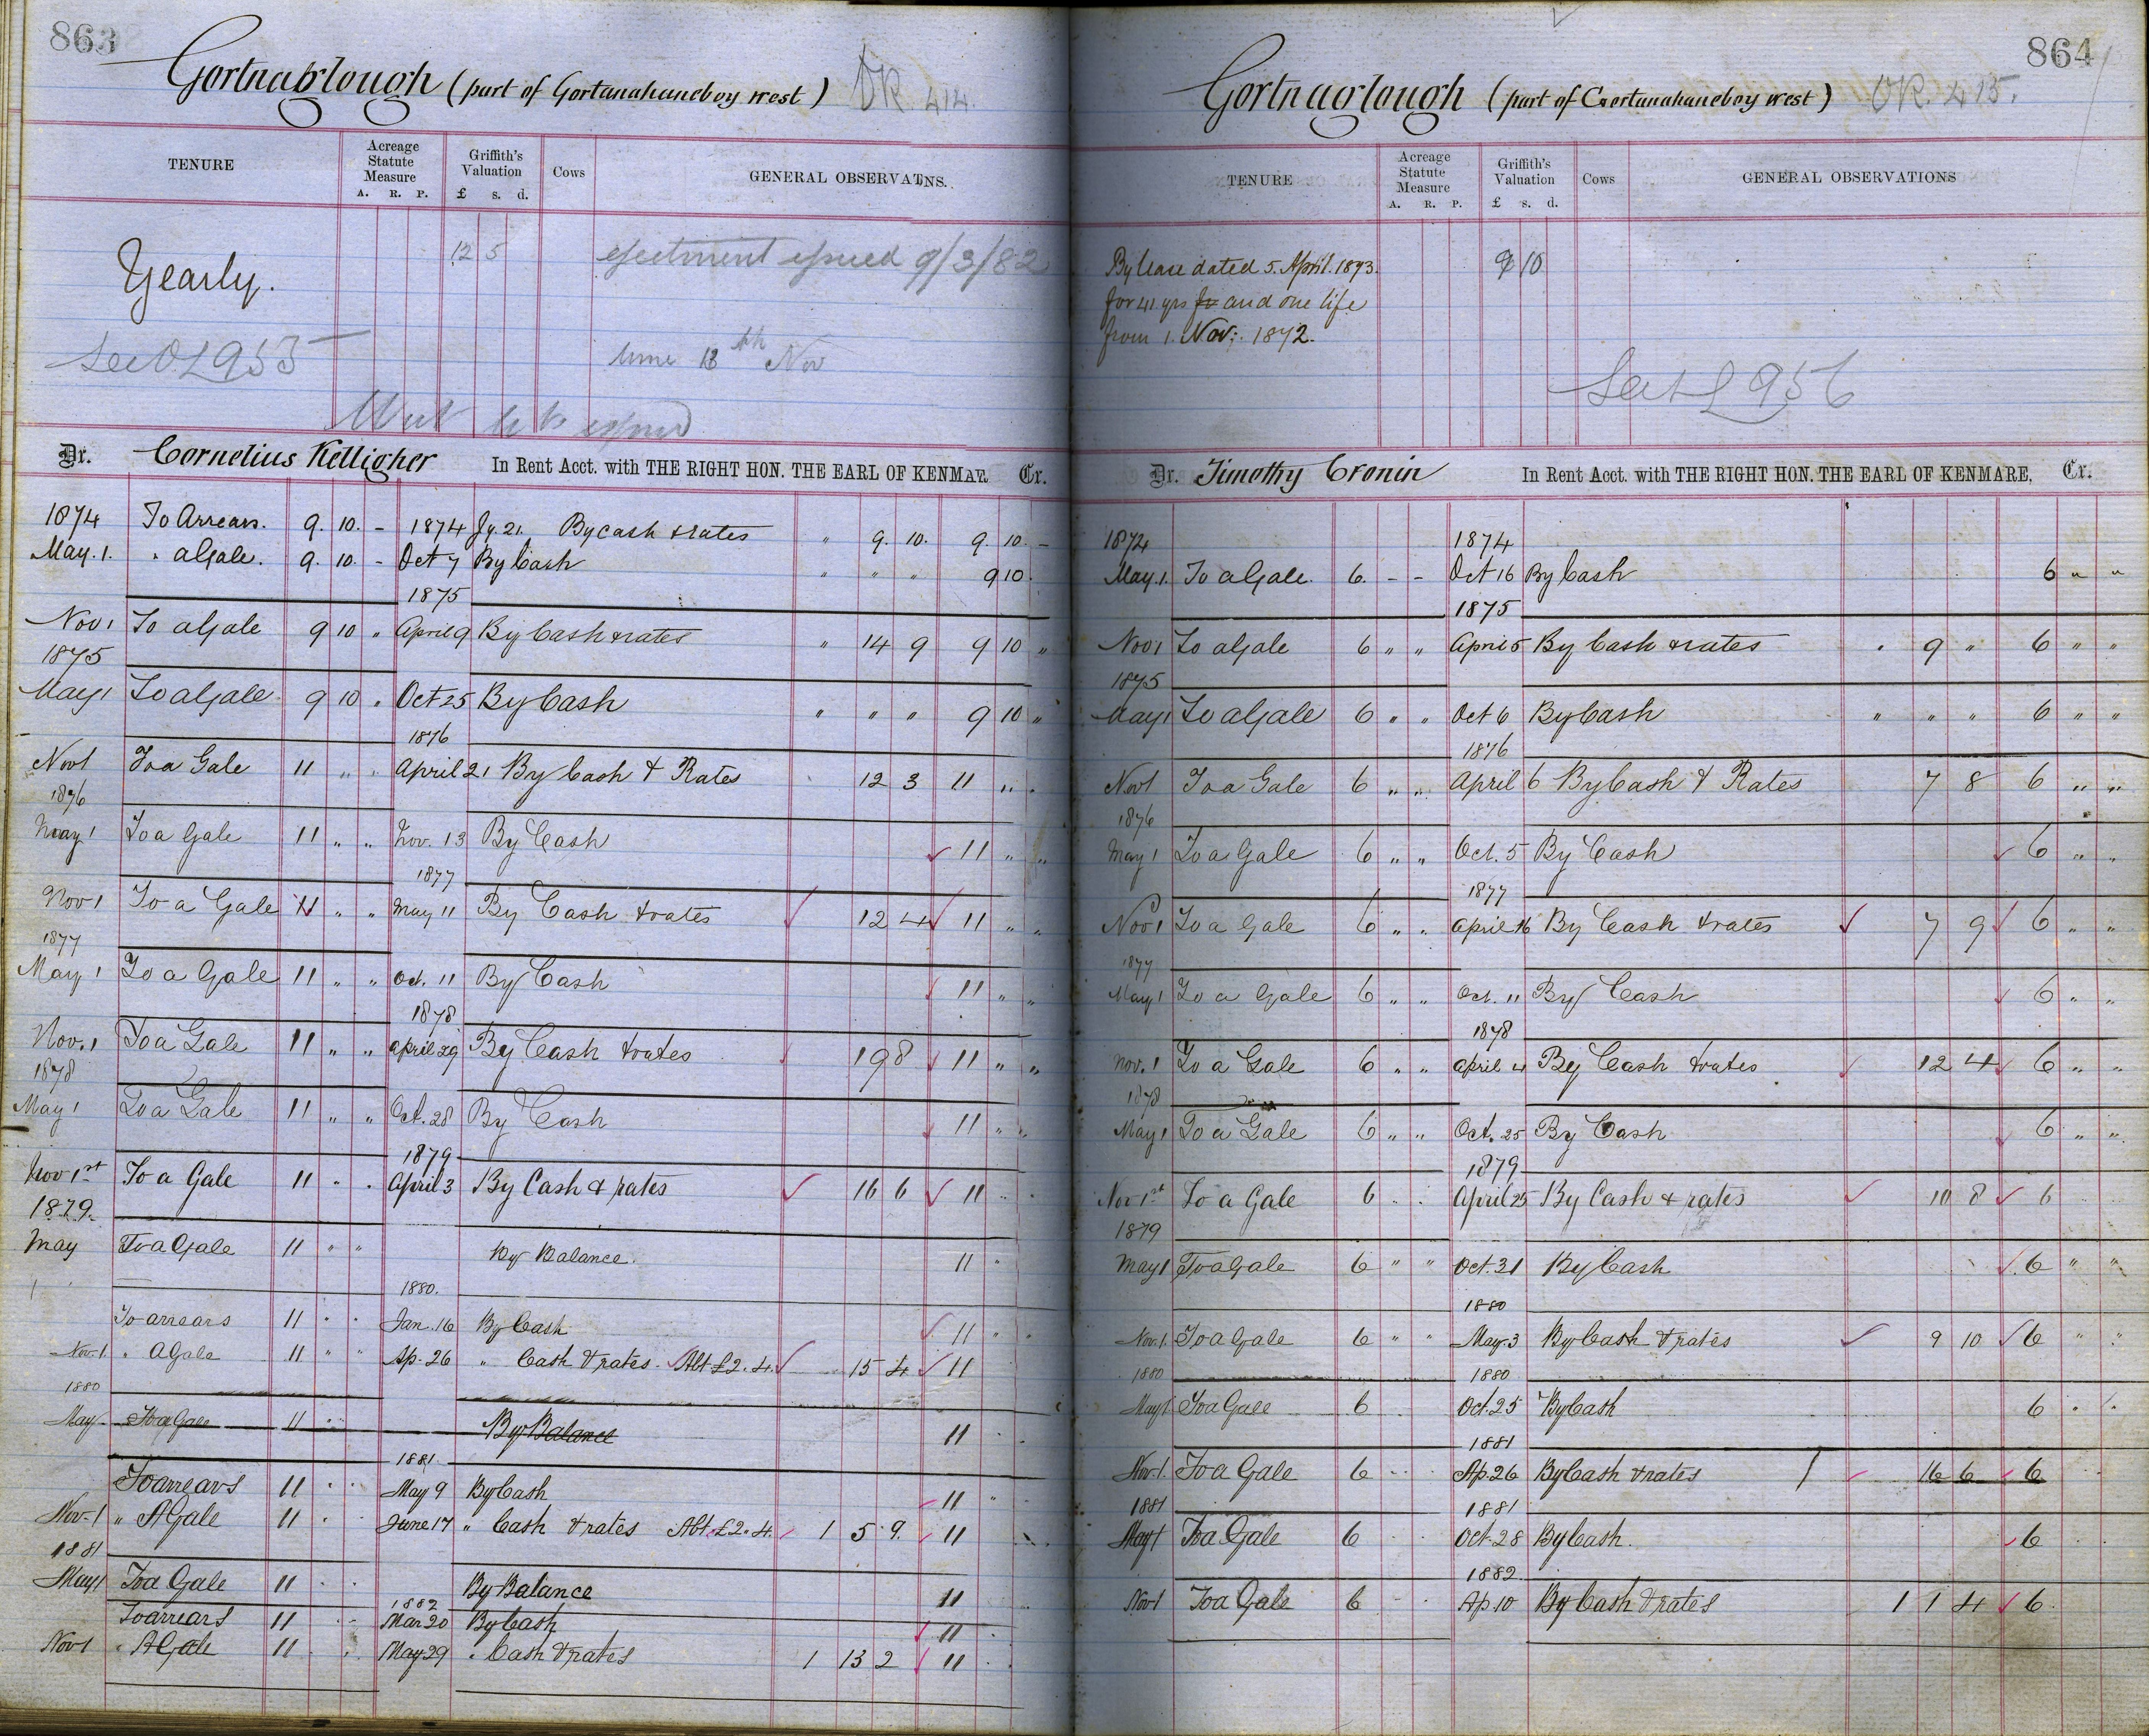 863
Gortnaglough (part of Gortanahaneboy west) OR 414.
TENURE
Acreage Statute Measure
A. R. P.
Griffith's Valuation
£ s. d.
Cows
GENERAL OBSERVATNS.
Yearly.
12 5
ejectment issued 9/3/82
See OL 955
time 18th Nov
Dr. Cornelius Kelligher In Rent Acct. with THE RIGHT HON. THE EARL OF KENMAR. Cr.
1874 To Arrears. 9. 10. - 1874 Jy. 21. By cash & rates " 9. 10. 9. 10. -
May. 1. " a Gale. 9. 10. - Oct 7 By Cash " " " 9 10
1875
Nov 1 To a Gale 9 10 " April 9 By Cash & rates " 14 9 9 10 "
1875
May 1 To a Gale 9 10 " Oct 25 By Cash " " " 9 10 "
1876
Nov 1 To a Gale 11 " " April 21 By Cash & Rates 12 3 11 " "
1876
May 1 To a Gale 11 " " Nov. 13 By Cash 11 " "
1877
Nov 1 To a Gale 11 " " May 11 By Cash & rates 12 4 11 " "
1877
May 1 To a Gale 11 " " Oct. 11 By Cash 11 " "
1878
Nov. 1 To a Gale 11 " " April 29 By Cash & rates 19 8 11 " "
1878
May 1 To a Gale 11 " " Oct. 28 By Cash 11 " "
1879
Nov 1st To a Gale 11 " " April 3 By Cash & rates 16 6 11 " "
1879.
May To a Gale 11 " " By Balance. 11 "
1 1880.
To arrears 11 " " Jan. 16 By Cash 11 " "
Nov. 1 " A Gale 11 " " Ap. 26 " Cash & rates Abt £2. 4. 15 4 11
1880
May To a Gale 11 " " By Balance 11 " "
1881
To arrears 11 " " May 9 By Cash 11 "
Nov. 1 " A Gale 11 " " June 17 " Cash & rates Abt. £2. 4. 1 5 9. 11
1881
May 1 To a Gale 11 " " By Balance 11
1882
To arrears 11 " " Mar 20 By Cash 11
Nov 1 " A Gale 11 " " May 29 " Cash & rates 1 13 2 11
864
Gortnaglough (part of Gortanahaneboy west) OR. 415.
TENURE
Acreage Statute Measure
A. R. P.
Griffith's Valuation
£ s. d.
Cows
GENERAL OBSERVATIONS
By lease dated 5. April. 1873.
for 41 yrs fr and one life
from 1. Nov: 1872.
9 10
See OL 956
Dr. Timothy Cronin In Rent Acct. with THE RIGHT HON. THE EARL OF KENMARE, Cr.
1874 1874
May. 1. To a Gale. 6. - - Oct 16 By Cash 6 " "
1875
Nov 1 To a Gale 6 " " April 5 By Cash & rates " 9 " 6 " "
1875
May 1 To a Gale 6 " " Oct 6 By Cash " " " 6 " "
1876
Nov 1 To a Gale 6 " " April 6 By Cash & Rates 7 8 6 " "
1876
May 1 To a Gale 6 " " Oct. 5 By Cash 6 " "
1877
Nov 1 To a Gale 6 " " April 16 By Cash & rates 7 9 6 " "
1877
May 1 To a Gale 6 " " Oct. 11 By Cash 6 " "
1878
Nov. 1 To a Gale 6 " " April 4 By Cash & rates 12 4 6 " "
1878
May 1 To a Gale 6 " " Oct. 25 By Cash 6 " "
1879
Nov 1st To a Gale 6 " " April 25 By Cash & rates 10 8 6
1879
May 1 To a Gale 6 " " Oct. 31 By Cash 6 " "
1880
Nov. 1. To a Gale 6 " " May 3 By Cash & rates 9 10 6 " "
1880 1880
May 1 To a Gale 6 Oct. 25 By Cash 6 " "
1881
Nov. 1. To a Gale 6 " " Ap. 26 By Cash & rates 16 6 6
1881 1881
May 1 To a Gale 6 Oct. 28 By Cash. 6
1882
Nov 1 To a Gale 6 Ap 10 By Cash & rates 1 1 4 6